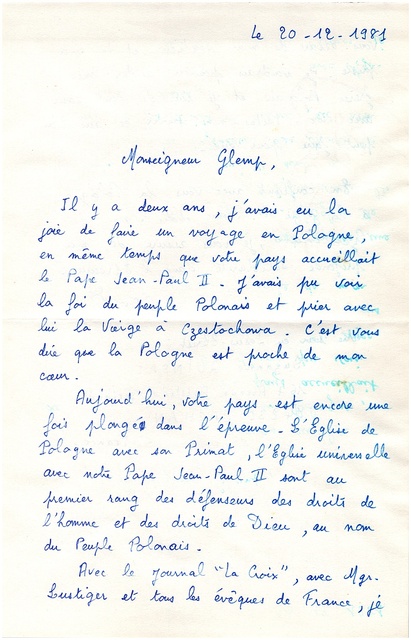 Le 20-12-1981
Monseigneur Glemp,
Il y a deux ans, j'avais eu la
joie de faire un voyage en Pologne,
en même temps que votre pays accueillait
le Pape Jean-Paul II. J'avais pu voir
la foi du peuple Polonais et prier avec
lui la Vierge à Czestochowa. C'est vous
dire que la Pologne est proche de mon
cœur.
Aujourd'hui, votre pays est encore une
fois plongé dans l'épreuve. L'Eglise de
Pologne avec son Primat, l'Eglise universelle
avec notre Pape Jean-Paul II sont au
premier rang des défenseurs des droits de
l'homme et des droits de Dieu, au nom
du Peuple Polonais.
Avec le journal "La Croix", avec Mgr.
Lustiger et tous les évêques de France, je